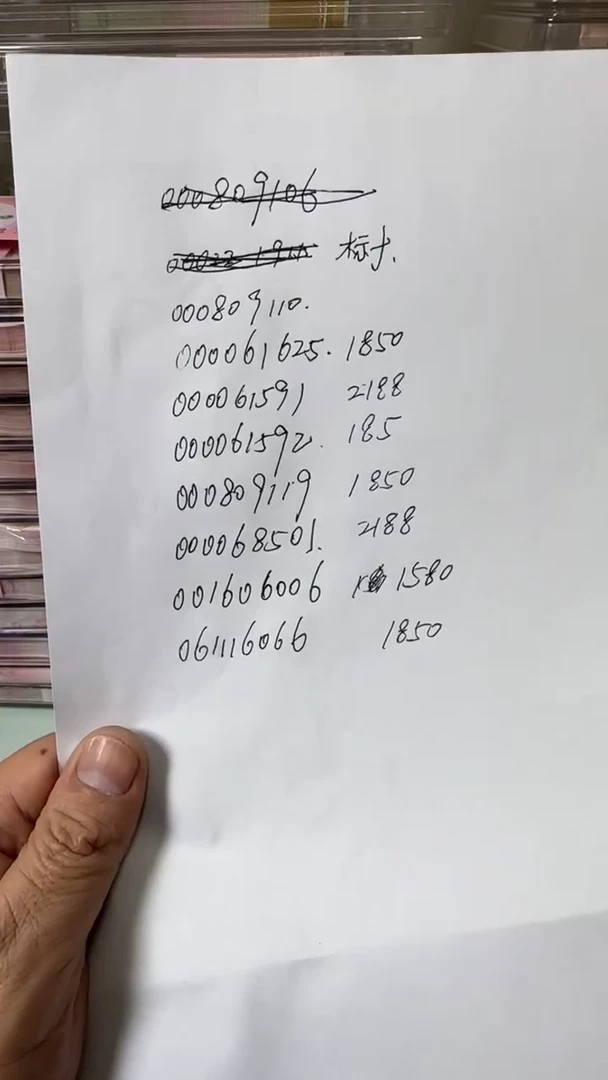 000809106
标十.
000809110.
000061625. 1850
000061591 2188
000061592. 185
000809119 1850
000068501. 2188
001606006 1580
061116066 1850